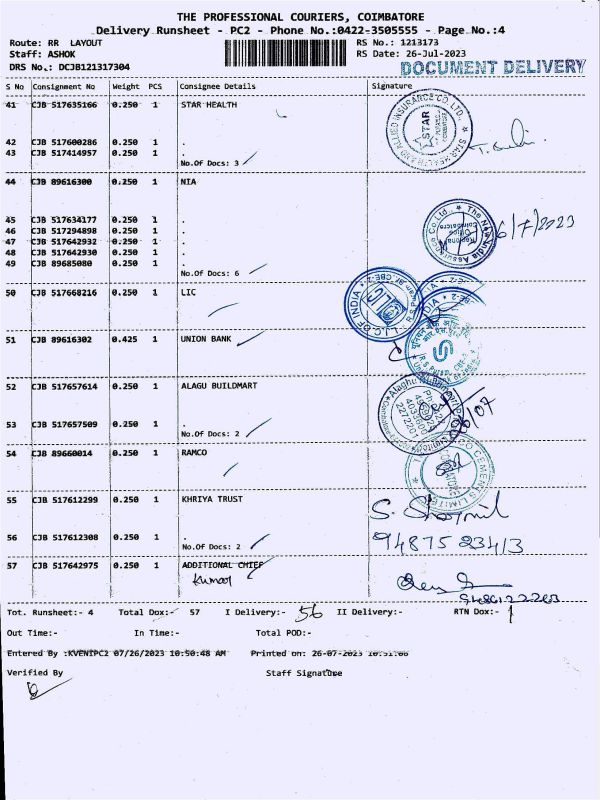 THE PROFESSIONAL COURIERS, COIMBATORE
Delivery Runsheet - PC2 - Phone No.:0422-3505555 - Page No.:4
Route: RR LAYOUT RS No.: 1213173
Staff: ASHOK RS Date: 26-Jul-2023
DRS No.: DCJB121317304 DOCUMENT DELIVERY
S No Consignment No Weight PCS Consignee Details Signature
41 CJB 517635166 0.250 1 STAR HEALTH
STAR HEALTH AND ALLIED INSURANCE CO LTD.
STAR
42 CJB 517600286 0.250 1 .
43 CJB 517414957 0.250 1 .
No.Of Docs: 3
44 CJB 89616300 0.250 1 NIA
45 CJB 517634177 0.250 1 .
The New India Assurance Co. Ltd.
Regional Office
Coimbatore
6/7/2023
46 CJB 517294898 0.250 1 .
47 CJB 517642932 0.250 1 .
48 CJB 517642930 0.250 1 .
49 CJB 89685080 0.250 1 .
No.Of Docs: 6
50 CJB 517668216 0.250 1 LIC
LIC OF INDIA
LIC
51 CJB 89616302 0.425 1 UNION BANK
52 CJB 517657614 0.250 1 ALAGU BUILDMART
53 CJB 517657509 0.250 1 .
No.Of Docs: 2
54 CJB 89660014 0.250 1 RAMCO
CEMENTS LIMITED
55 CJB 517612299 0.250 1 KHRIYA TRUST
56 CJB 517612308 0.250 1 .
No.Of Docs: 2
94875 23413
57 CJB 517642975 0.250 1 ADDITIONAL CHIEF
Kumar
Tot. Runsheet:- 4 Total Dox:- 57 I Delivery:- 56 II Delivery:- RTN Dox:- 1
Out Time:- In Time:- Total POD:-
Entered By :KVENIPC2 07/26/2023 10:50:48 AM Printed on: 26-07-2023
Verified By Staff Signature